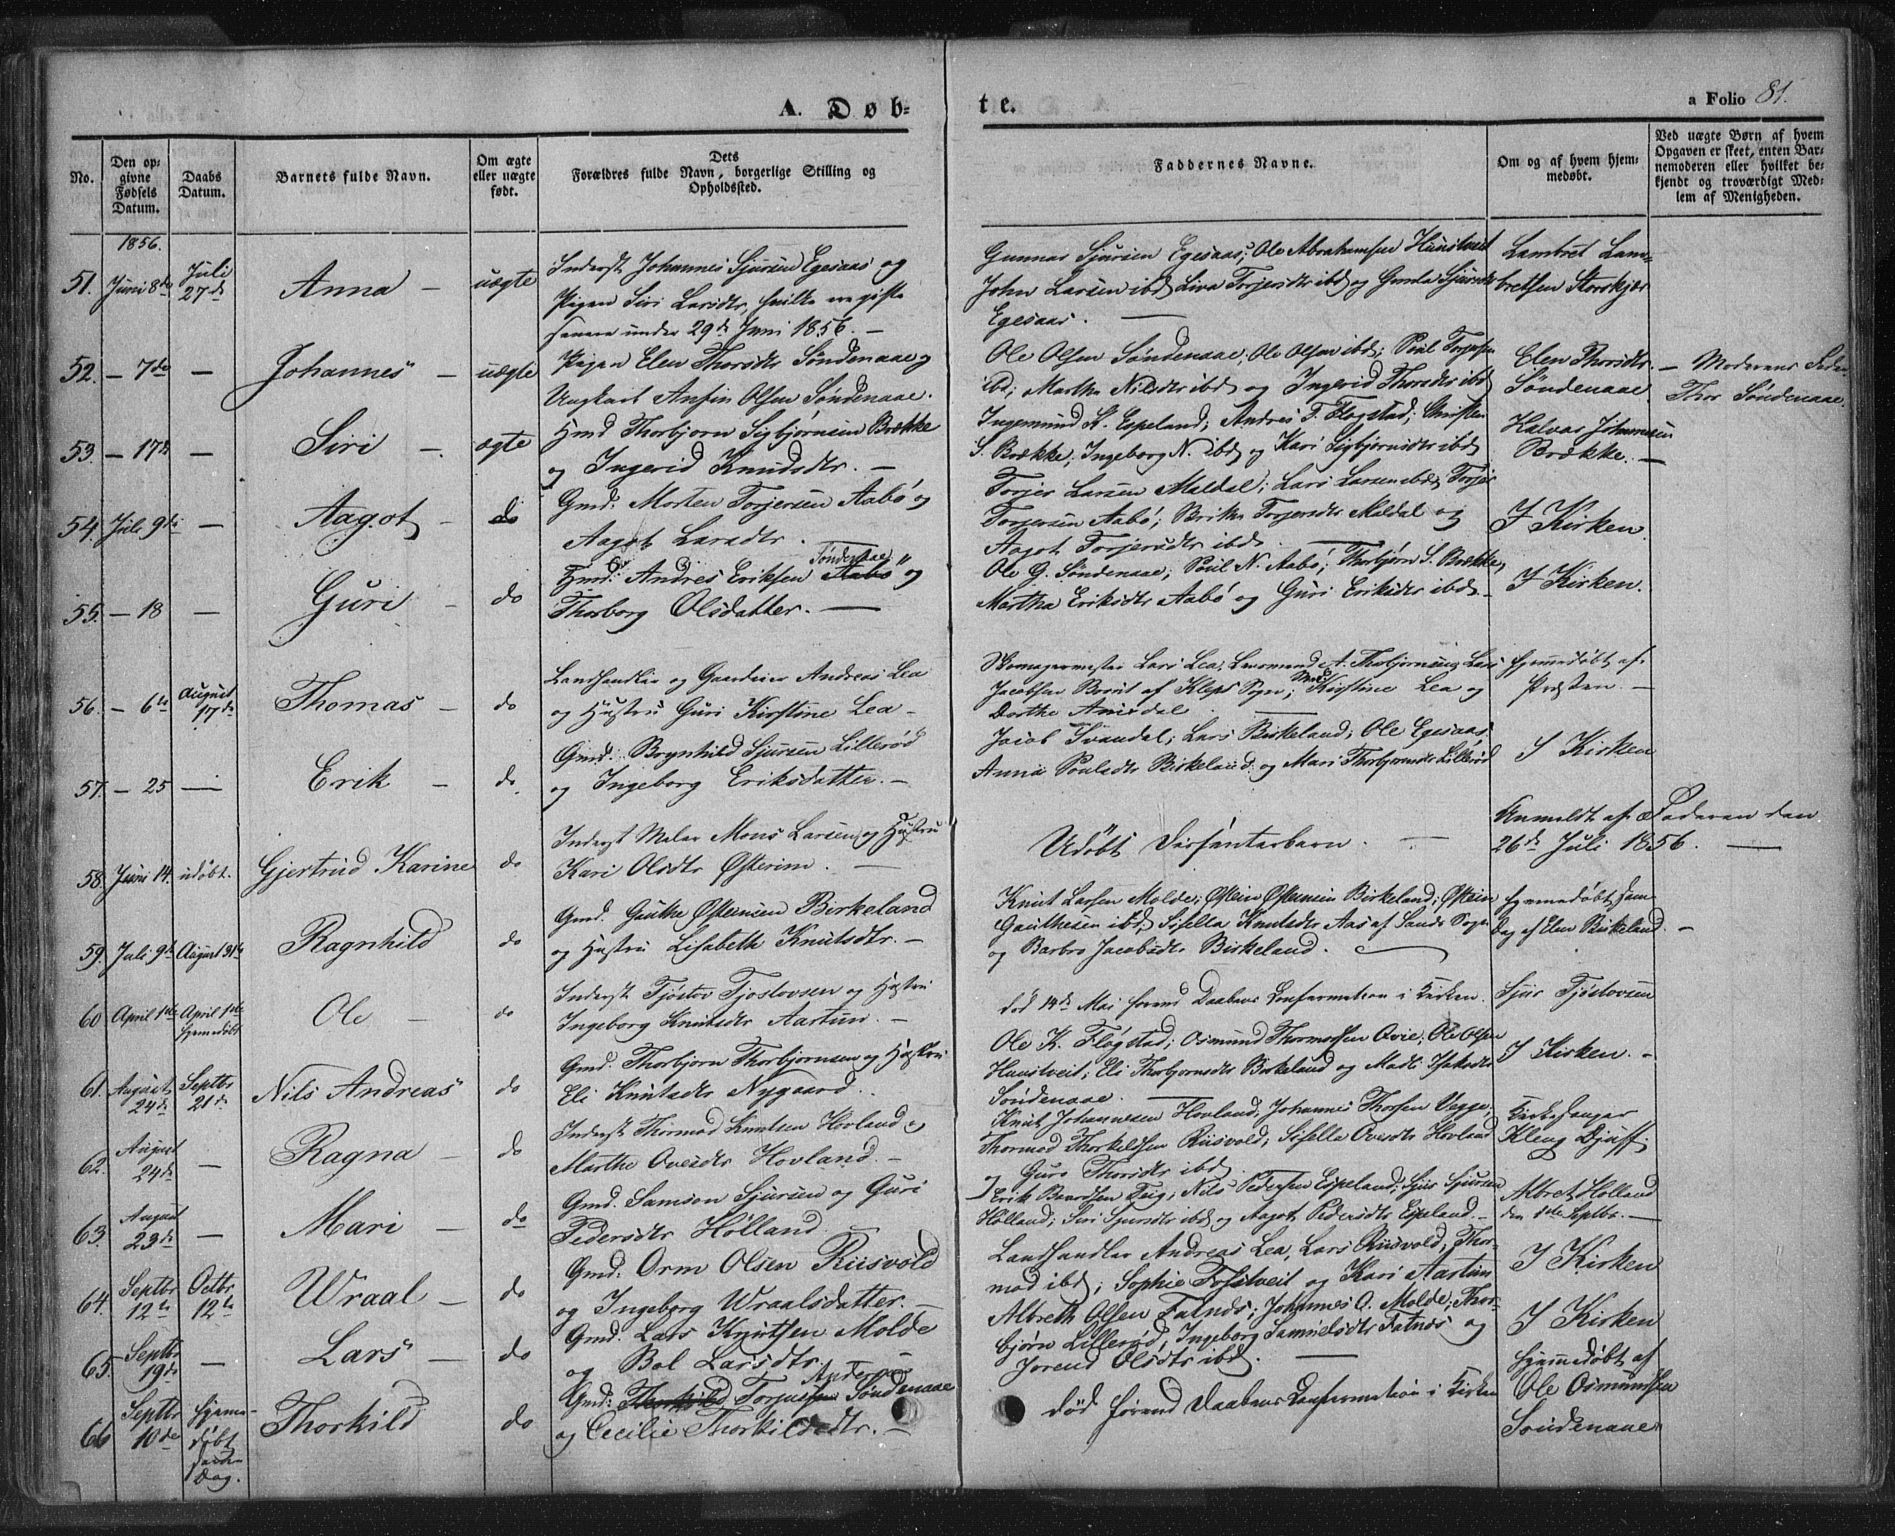 A. Døb-
te.
a Folio 81.
No.
Den op-
givne
Fødsels
Datum.
Daabs
Datum.
Barnets fulde Navn.
Om ægte
eller uægte
født.
Dets
Forældres fulde Navn, borgerlige Stilling og
Opholdssted.
Faddernes Navne.
Om og af hvem hjem-
medøbt.
Ved uægte Børn af hvem
Opgaven er skeet, enten Bar-
nemoderen eller hvilket be-
kjendt og troværdigt Med-
lem af Menigheden.
1856.
51. Juni 8de
Juli
27de
Anna –
uægte
Inderst Johannes Sjursen Egesaas og
Pigen Siri Larsdtr hvilke ere gifte
sammen under 29de Juni 1856. –
Gunnar Sjursen Egesaas; Ole Abrahamsen Haustveit
John Larsen ibd Liva Torjersdtr ibd og Gunla Sjursdtr
Egesaas. –
Lambret Lam-
bretsen Storskjær
52. – 7de –
Johannes –
uægte
Pigen Elen Thorsdtr Søndenaae og
Ungkarl Anfin Olsen Søndenaae.
Ole Olsen Søndenaae; Ole Olsen ibd; Poul Torjesen
ibd; Martha Nilsdtr ibd og Ingerid Thorsdtr ibd
Elen Thorsdtr
Søndenaae
– Moderens Fader
Thor Søndenaae.
53. – 17de –
Siri –
ægte
Gmd Thorbjørn Sigbjørnsen Brække
og Ingerid Knudsdtr. –
Ingemund K. Espeland; Andres T. Flogstad; Christen
S. Brække; Ingeborg N. ibd og Kari Sigbjørnsdtr ibd
Halvar Johannesen
Brække. –
54. Juli 9de –
Aagot –
do
Gmd: Morten Torjersen Aabø og
Aagot Larsdtr.
Torjer Larsen Maldal; Lars Larsen ibd; Torjer
Torjersen Aabø; Brita Torjersdtr Maldal og
Aagot Torjersdtr ibd. –
I Kirken.
55. – 18 –
Guri –
do
Søndenaae
Gmd: Andres Eriksen Aabø og
Thorborg Olsdatter. –
Ole G. Søndenaae; Poul N. Aabø; Thorbjørn S. Brække
Martha Eriksdtr Aabø og Guri Eriksdtr ibd –
I Kirken.
56. – 6te
August
17de
Thomas –
do
Landhandler og Gaardeier Andreas Lea
og Hustru Guri Kirstine Lea –
Skomagermester Lars Lea, Lensmand A. Thorbjørnsen; Lars
Jacobsen Borut af Kleps Sogn; Kirstine Lea og
Dorthe Amsdal
Hjemmedøbt af
Præsten. –
57. – 25 –
Erik –
do
Gmd: Brynhild Sjursen Lillerød
og Ingeborg Eriksdatter. –
Jacob Svandal; Lars Birkeland; Ole Egesaas
Anna Poulsdtr Birkeland og Mari Thorbjørnsdtr Lillerød
I Kirken
58. Juni 14. udøbt.
Gjertrud Karine
do
Inderst Maler Mons Larsen og Hustru
Kari Olsdtr Østerim. –
Udøbt Disénterbarn. –
Anmeldt af Faderen den
26de Juli 1856. –
59. Juli 9de August 31te
Ragnhild
do
Gmd. Gauthe Østensen Birkeland
og Hustru Lisabeth Knutsdtr. –
Knut Larsen Molde; Østein Østensen Birkeland; Østein
Gauthesen ibd; Sisella Knutsdtr Aas af Sands Sogn
og Barbro Jacobsdtr Birkeland.
Hjemmedøbt sam-
Dag af Elen Birkeland. –
60 April 1ste April 1ste
hjemmedøbt
Ole –
do
Inderst Tjøstov Tjostovsen og Hustru
Ingeborg Knutsdtr Aartun. –
død 14de Mai forend Daabens Confirmation i Kirken.
Sjur Tjøstovsen
61. August
24de
Septbr
21de
Nils Andreas
do
Gmd. Thorbjørn Thorbjørnsen og Hustru
Eli Knutsdtr Nygaard.
Ole K. Fløgstad; Osmund Thormodsen Ovie; Ole Olsen
Haustveit; Eli Thorbjørnsdtr Birkeland og Madli Isaksdtr
Søndenaae. –
I Kirken. –
62. August
24de –
Ragna –
do
Inderst Thormod Knutsen Hovland og
Marthe Ovesdtr Hovland. –
Knut Johannesen Hovland, Johannes Thorsen Vegge,
Thormod Thorkelsen Riisvold; Sisella Ovesdtr Hovland
og Guro Thorsdtr ibd.
Kirkesanger
Kleng Djuff;
63. August
23de –
Mari –
do
Gmd. Samson Sjursen og Guri
Pedersdtr Hølland
Erik Bendsen Teig; Nils Pedersen Espeland; Sjur Sjursen
Hølland; Siri Sjursdtr ibd og Aagot Pedersdtr Espeland. –
Albret Holland
den 1ste Septbr. –
64. Septbr
12te
Octbr.
12te
Wraal –
do
Gmd: Orm Olsen Riisvold
og Ingeborg Wraalsdatter. –
Landhandler Andreas Lea, Lars Riisvold, Thor-
mod ibd; Sophie Tostveit og Kari Aartun
I Kirken
65. Septbr
19de –
Lars –
do
Gmd. Lars Knutsen Molde
og Bol Larsdtr. –
Albreth Olsen Fatnæs; Johannes O. Molde; Thor-
bjørn Lillerød, Ingeborg Samuelsdtr Fatnæs og
Jorend Olsdtr ibd. –
I Kirken
66 Septbr
10de
hjemme-
døbt
samme
Dag.
Thorkild
do
Anders
Gmd: Thorkild Torjussen Søndenaae
og Cecilie Thorkildsdtr. –
død forend Daabens Confirmation i Kirken
Hjemmedøbt af
Ole Osmundsen
Søndenaae